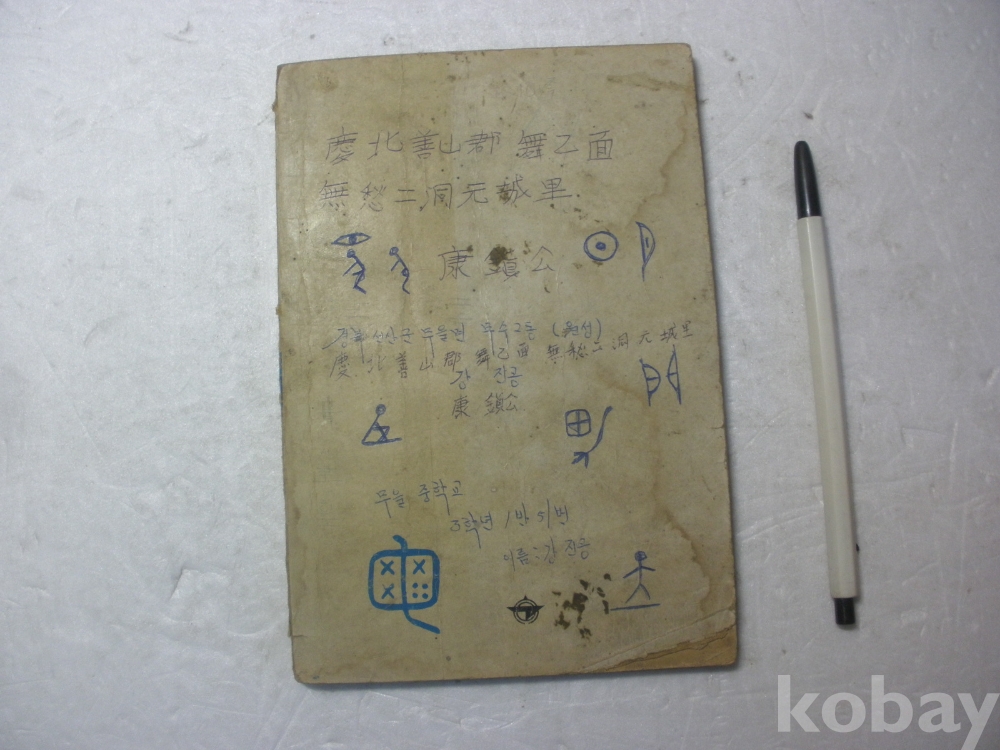 慶北善山郡 舞乙面
無愁二洞元誠里.
康鎭公
경북 선산군 무을면 무수2동 (원선)
慶北善山郡 舞乙面 無愁二洞元城里
강 진공
康 鎭公
무을 중학교
3학년 1반 51번
이름: 강진공
kobay